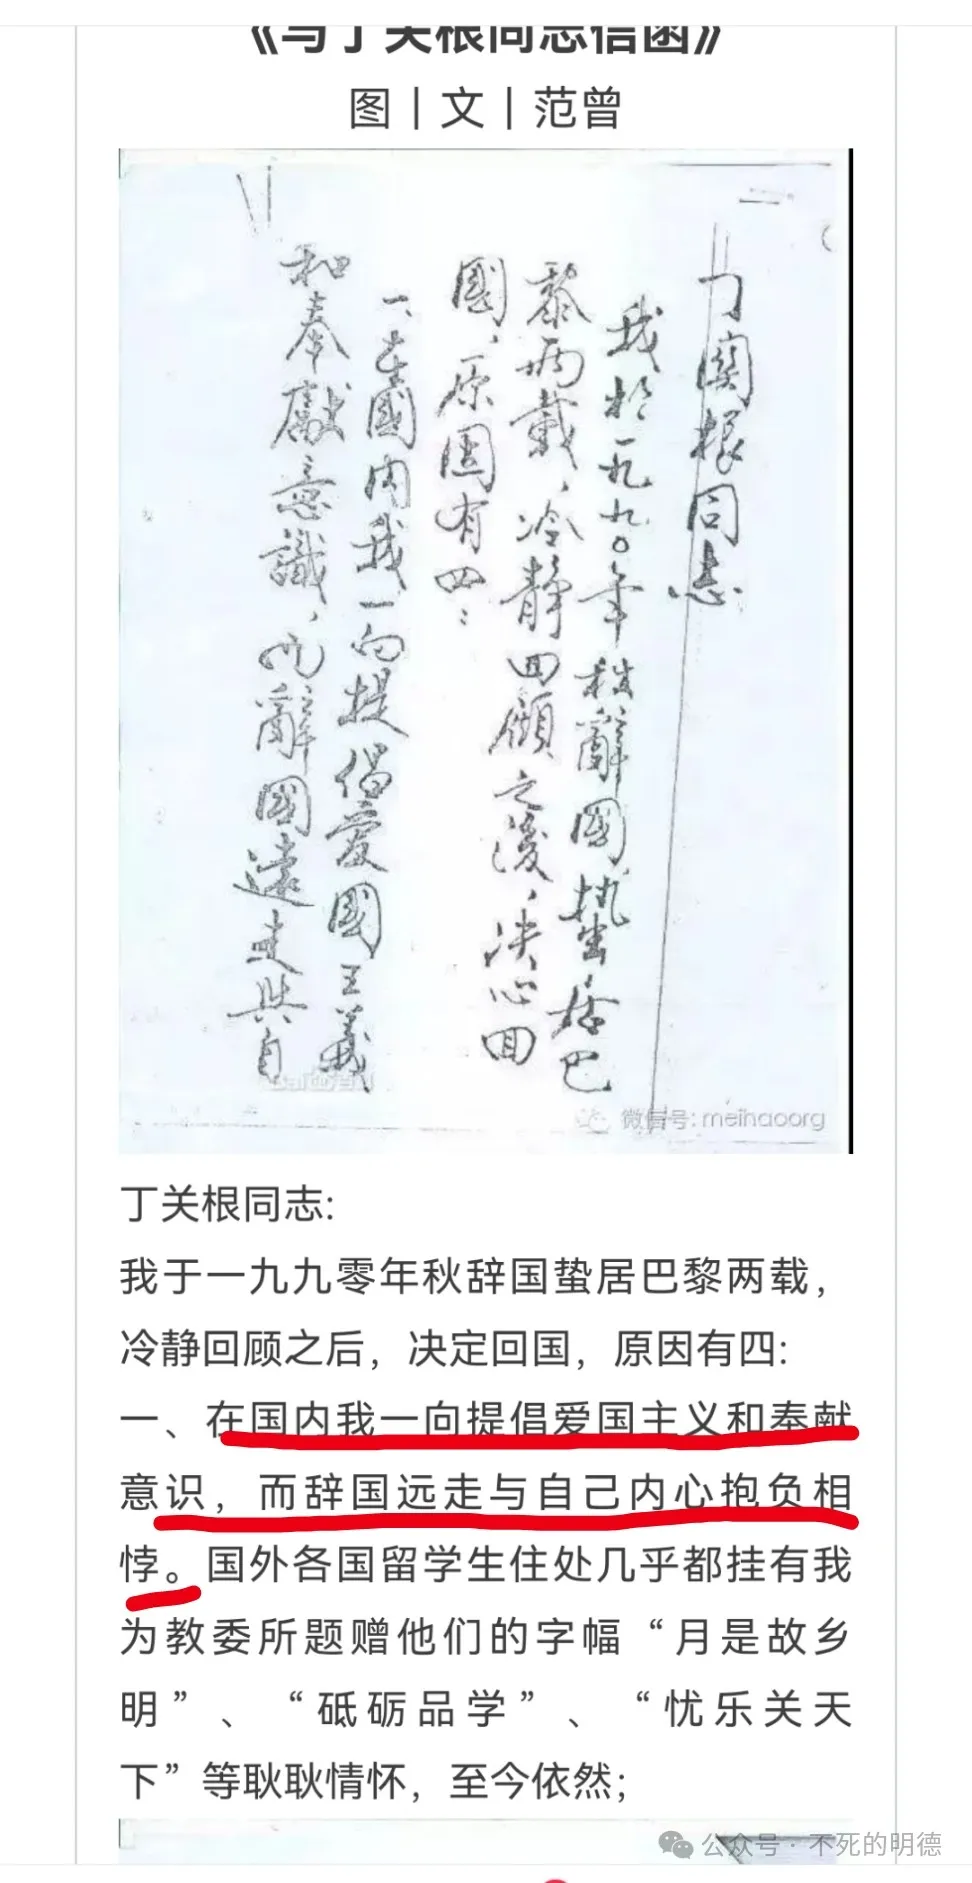 《与丁关根同志信函》
图｜文｜范曾
丁關根同志
我於一九九〇年秋辭國蟄居巴
黎兩載，冷靜回顧之後，決心回
國，原因有四：
一、在國内我一向提倡愛國主義
和奉獻意識，而辭國遠走與自
Baidu百科
微信号: meihaoorg
丁关根同志:
我于一九九零年秋辞国蛰居巴黎两载，
冷静回顾之后，决定回国，原因有四:
一、在国内我一向提倡爱国主义和奉献
意识，而辞国远走与自己内心抱负相
悖。国外各国留学生住处几乎都挂有我
为教委所题赠他们的字幅“月是故乡
明”、“砥砺品学”、“忧乐关天
下”等耿耿情怀，至今依然；
公众号 · 不死的明德